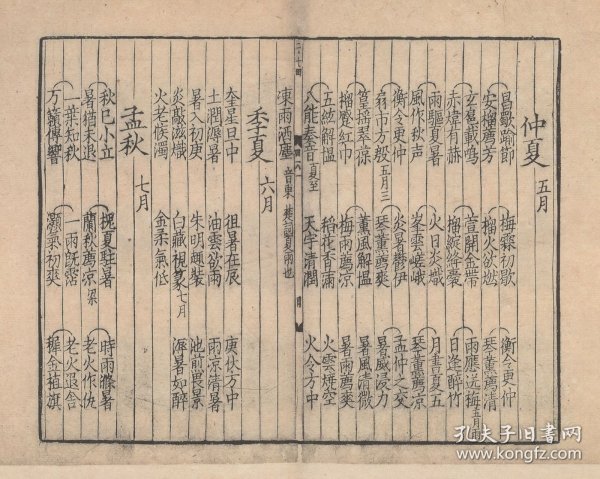 仲夏 五月
昌歜踰節 梅霖初歇 衡令更仲
安榴薦芳 榴火欲燃 琴薰薦清
玄𪃟載鳴 萱開金帶 雨應近梅
赤煒有赫 榴綻絳囊 日逢醉竹
雨驅夏暑 火日炎熾 月書夏五
風作秋声 峯雲嵯峨 琴薰薦凉
衡令更仲 炎暑鬱伊 孟仲之交
扇市方般 五月三 琴薰薦爽 暑威浸力
篁摇翠葆 薰風解愠 暑風清微
榴皺紅巾 梅雨薦凉 暑雨薦爽
五絃解愠 稻花香滿 火雲燒空
八能奏音 夏至 天宇清潤 火令方中
凍雨洒塵 音東 楚詞夏雨也
季夏 六月
奎星旦中 徂暑在辰 庚伏方中
土潤溽暑 油雲欲雨 雨凉清暑
暑入初庚 朱明趣裝 池前畏景
炎敲滋熾 白藏視篆 七月 溽暑如醉
火老候濁 金柔氣低
孟秋 七月
秋已小立 槐夏駐暑 時雨滌暑
暑猶未退 蘭秋薦凉 梁 老火作仇
一葉知秋 一雨既霑 老火退舍
万籟傳響 灝氣初爽 稚金植旗
孔夫子旧書网
www.kongfz.com